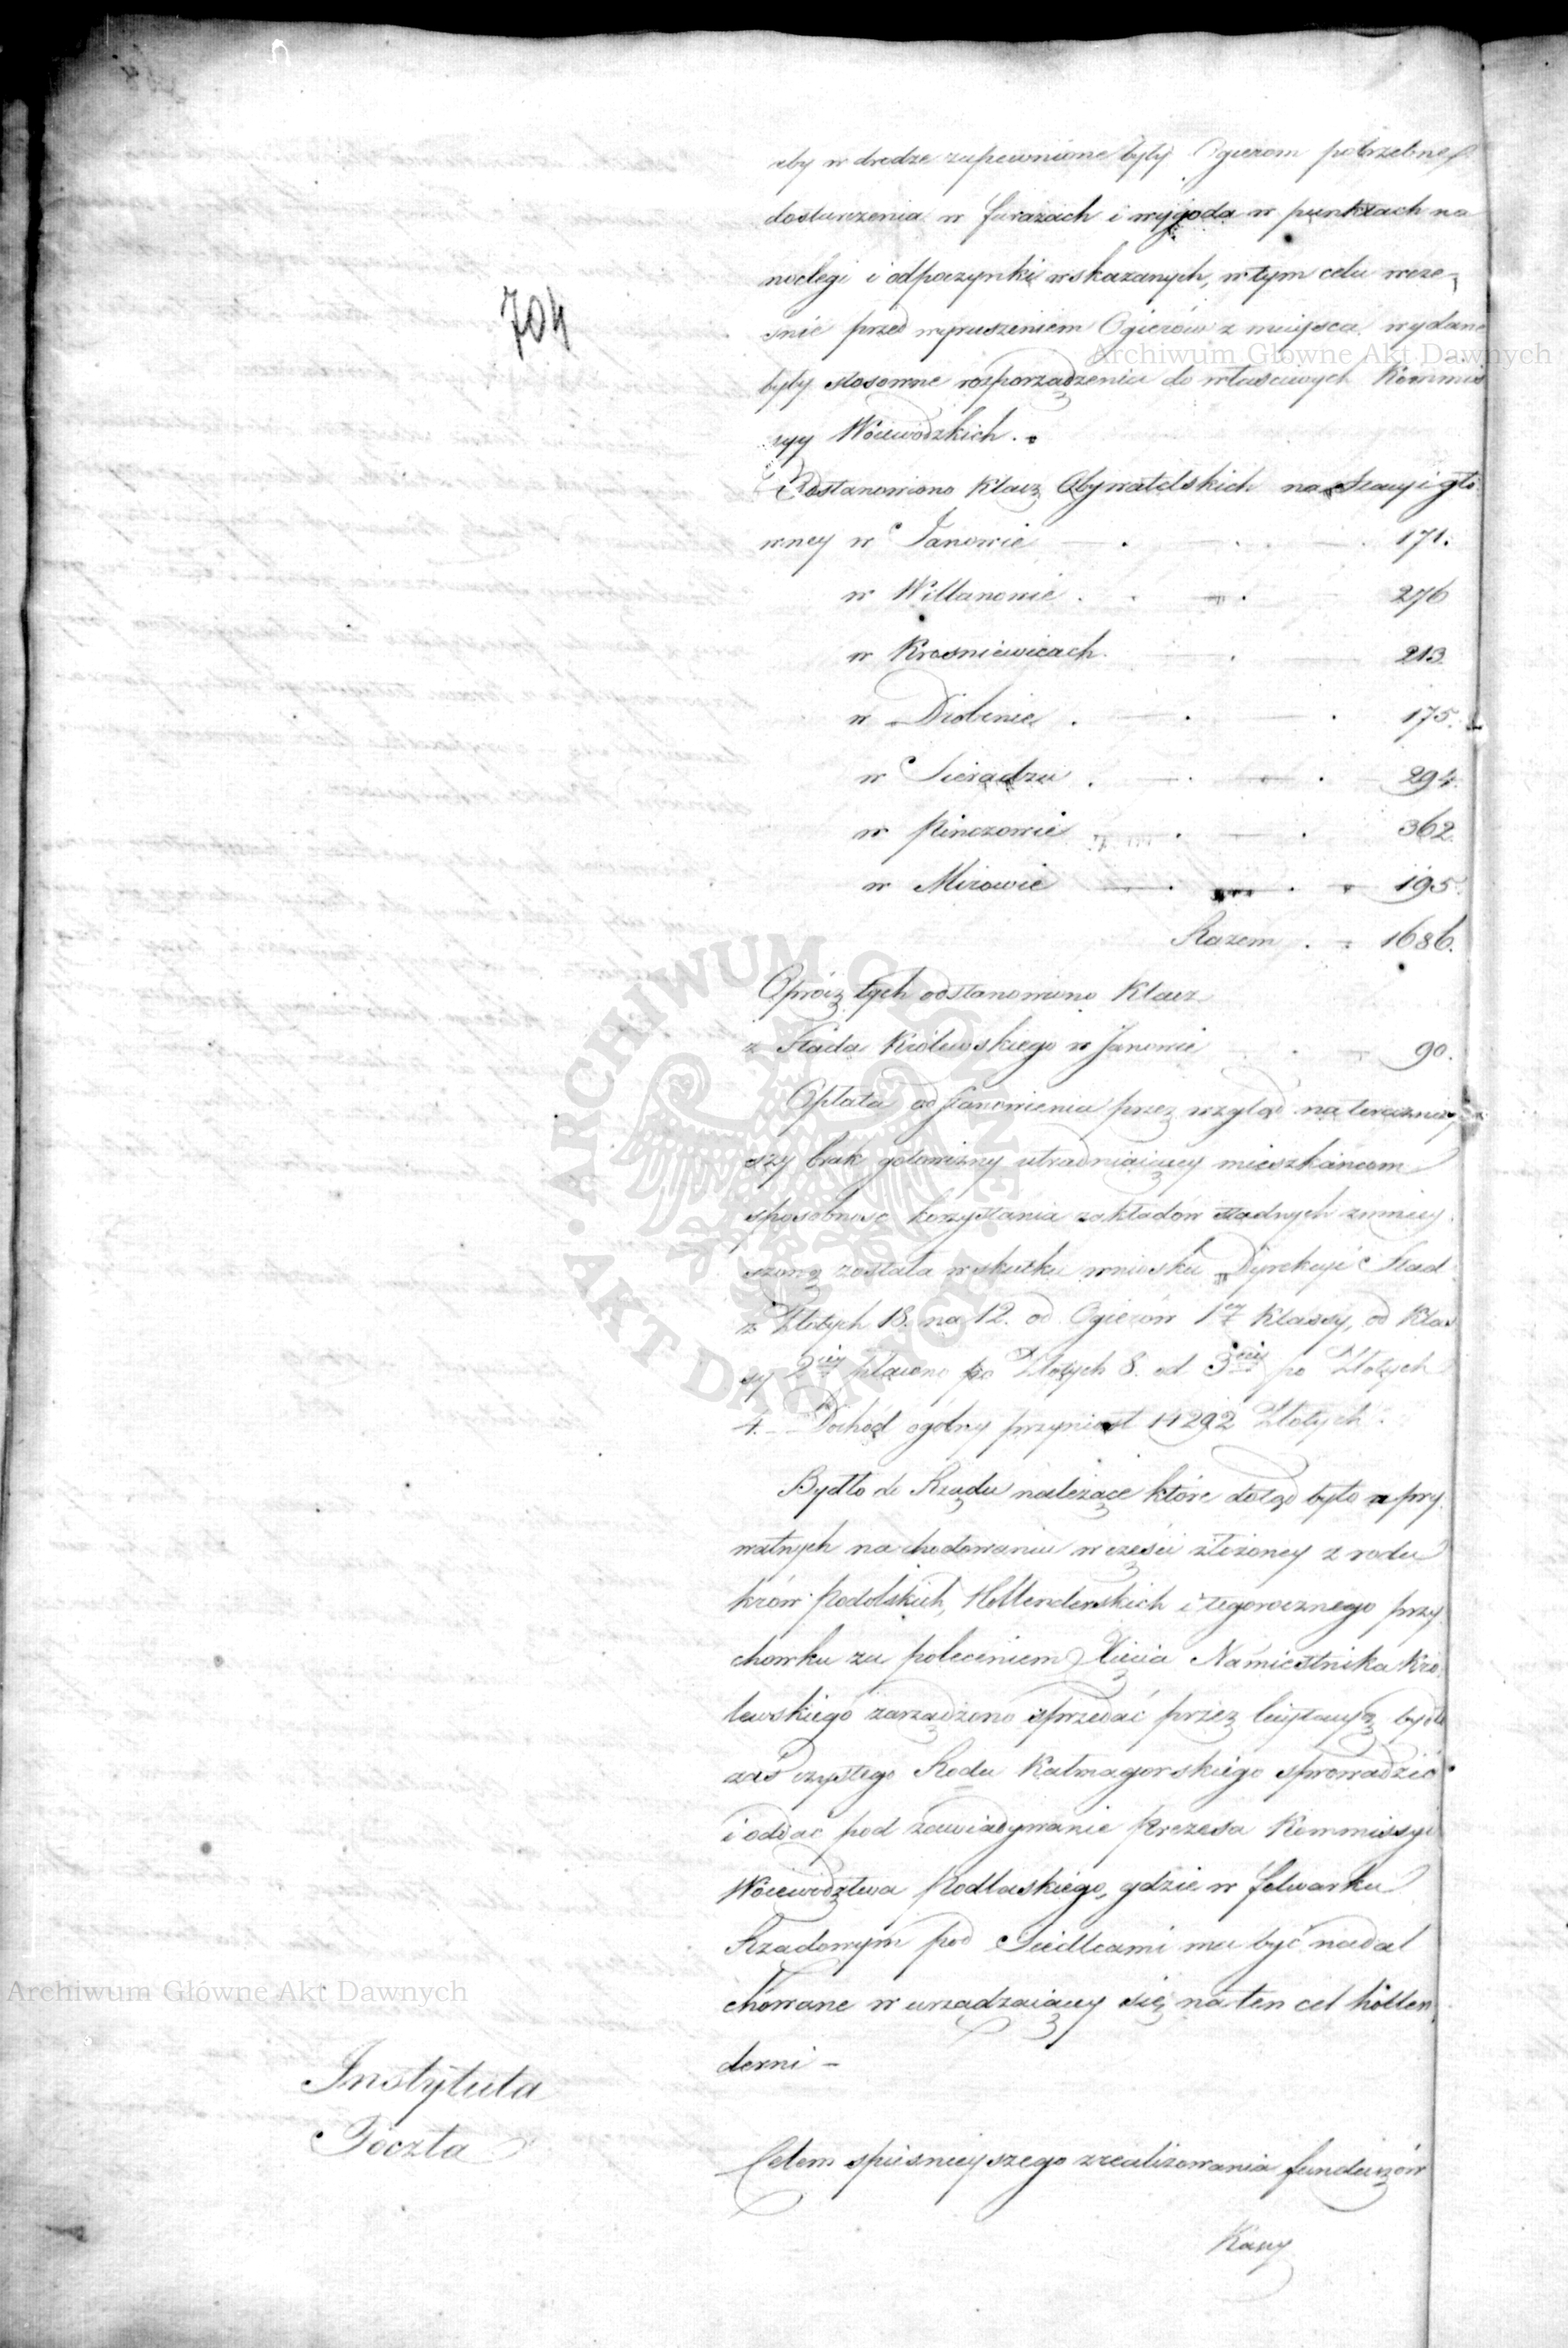 704
aby w drodze zapewnione były Ogierom potrzebne
dostarczenia w furażach i wygoda w punktach na
noclegi i odpoczynki wskazanych, w tym celu wcze-
śnie przed wyruszeniem Ogierów z mieysca wydane
Archiwum Główne Akt Dawnych
były stosowne rozporządzenia do właściwych Kommis
syy Woiewodzkich.
Odstanowiono Klaczy Obywatelskich na Stacyi głó
wney w Janowie 171.
w Willanowie 276
w Krosniewicach 213
w Drobinie 175.
w Sieradzu 294.
w Pinczowie 362.
w Mirowie 195.
Razem 1686.
Oprócz tych odstanowiono Klacz
z Stada Królewskiego w Janowie 90.
Opłata od stanowienia przez wzgląd na teraźniey
szy brak gotowizny utrudniaiący mieszkańcom
sposobność korzystania zakładów stadnych zmniey
szoną została w skutku wniosku Dyrekcyi Stad
z Złotych 18. na 12. od Ogierów 1ey Klassy, od Klas
sy 2iey płacono po Złotych 8. od 3ciey po Złotych
4. Dochód ogólny przyniosł 14292 Złotych.
Bydło do Rządu należące które dotąd było u pry
watnych na chodowaniu w części złożoney z rodu
krów Podolskich, Hollenderskich i tegorocznego przy
chowku za poleceniem Xięcia Namiestnika Kró
lewskiego zarządzono sprzedać przez licytacyą bydło
zaś czystego Rodu Kalmagorskiego sprowadzić
i oddać pod zawiadywanie Prezesa Kommissyi
Woiewództwa Podlaskiego, gdzie w folwarku
Rządowym pod Siedlcami ma być nadal
chowane w urządzaiącey się na ten cel hollen
derni –
Archiwum Główne Akt Dawnych
Instytuta
Poczta
Celem spiesznieyszego zrealizowania funduszów
Kassy
ARCHIWUM GŁÓWNE • AKT DAWNYCH •